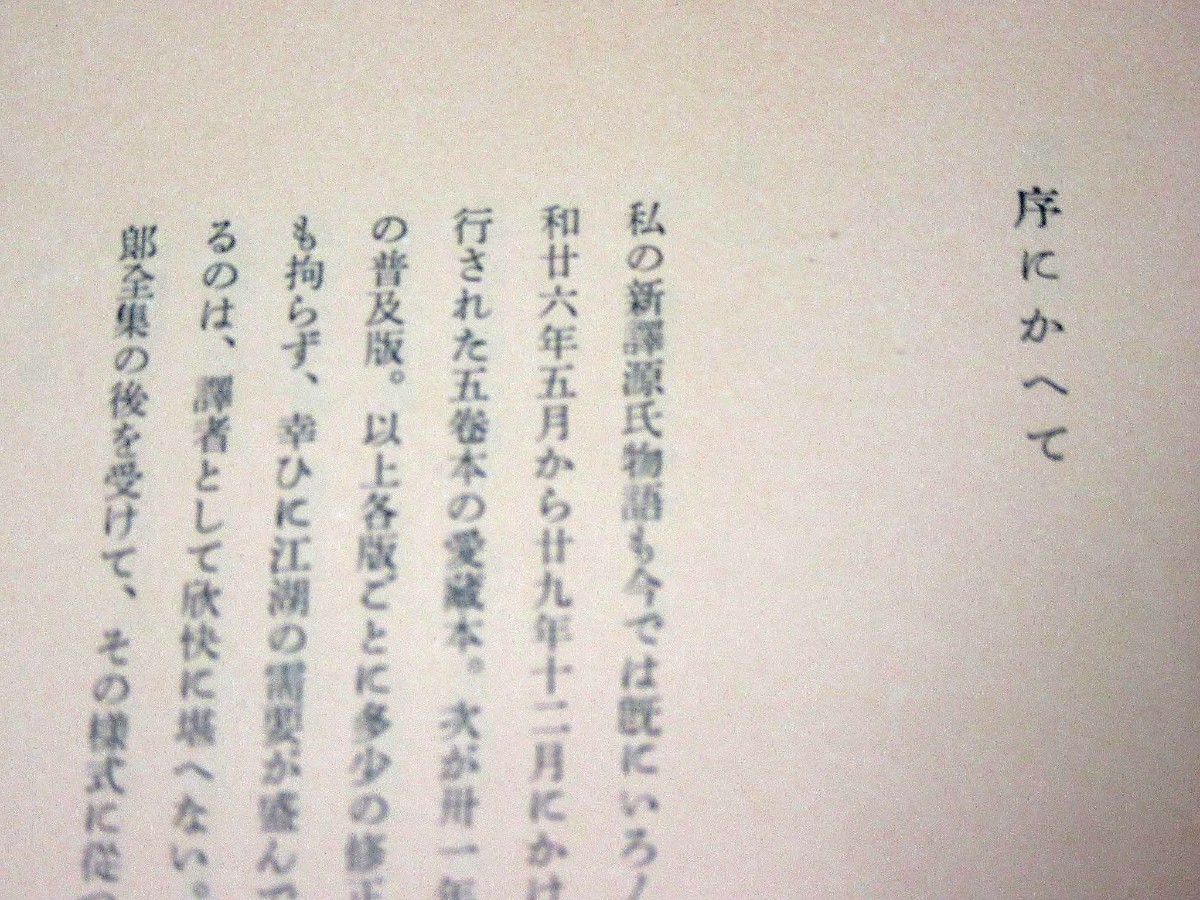 序にかへて
私の新譯源氏物語も今では既にいろ〳
和廿六年五月から廿九年十二月にかけ
行された五卷本の愛藏本。次が卅一年
の普及版。以上各版ごとに多少の修正
も拘らず、幸ひに江湖の需要が盛んで
るのは、譯者として欣快に堪へない。
郎全集の後を受けて、その樣式に從つ